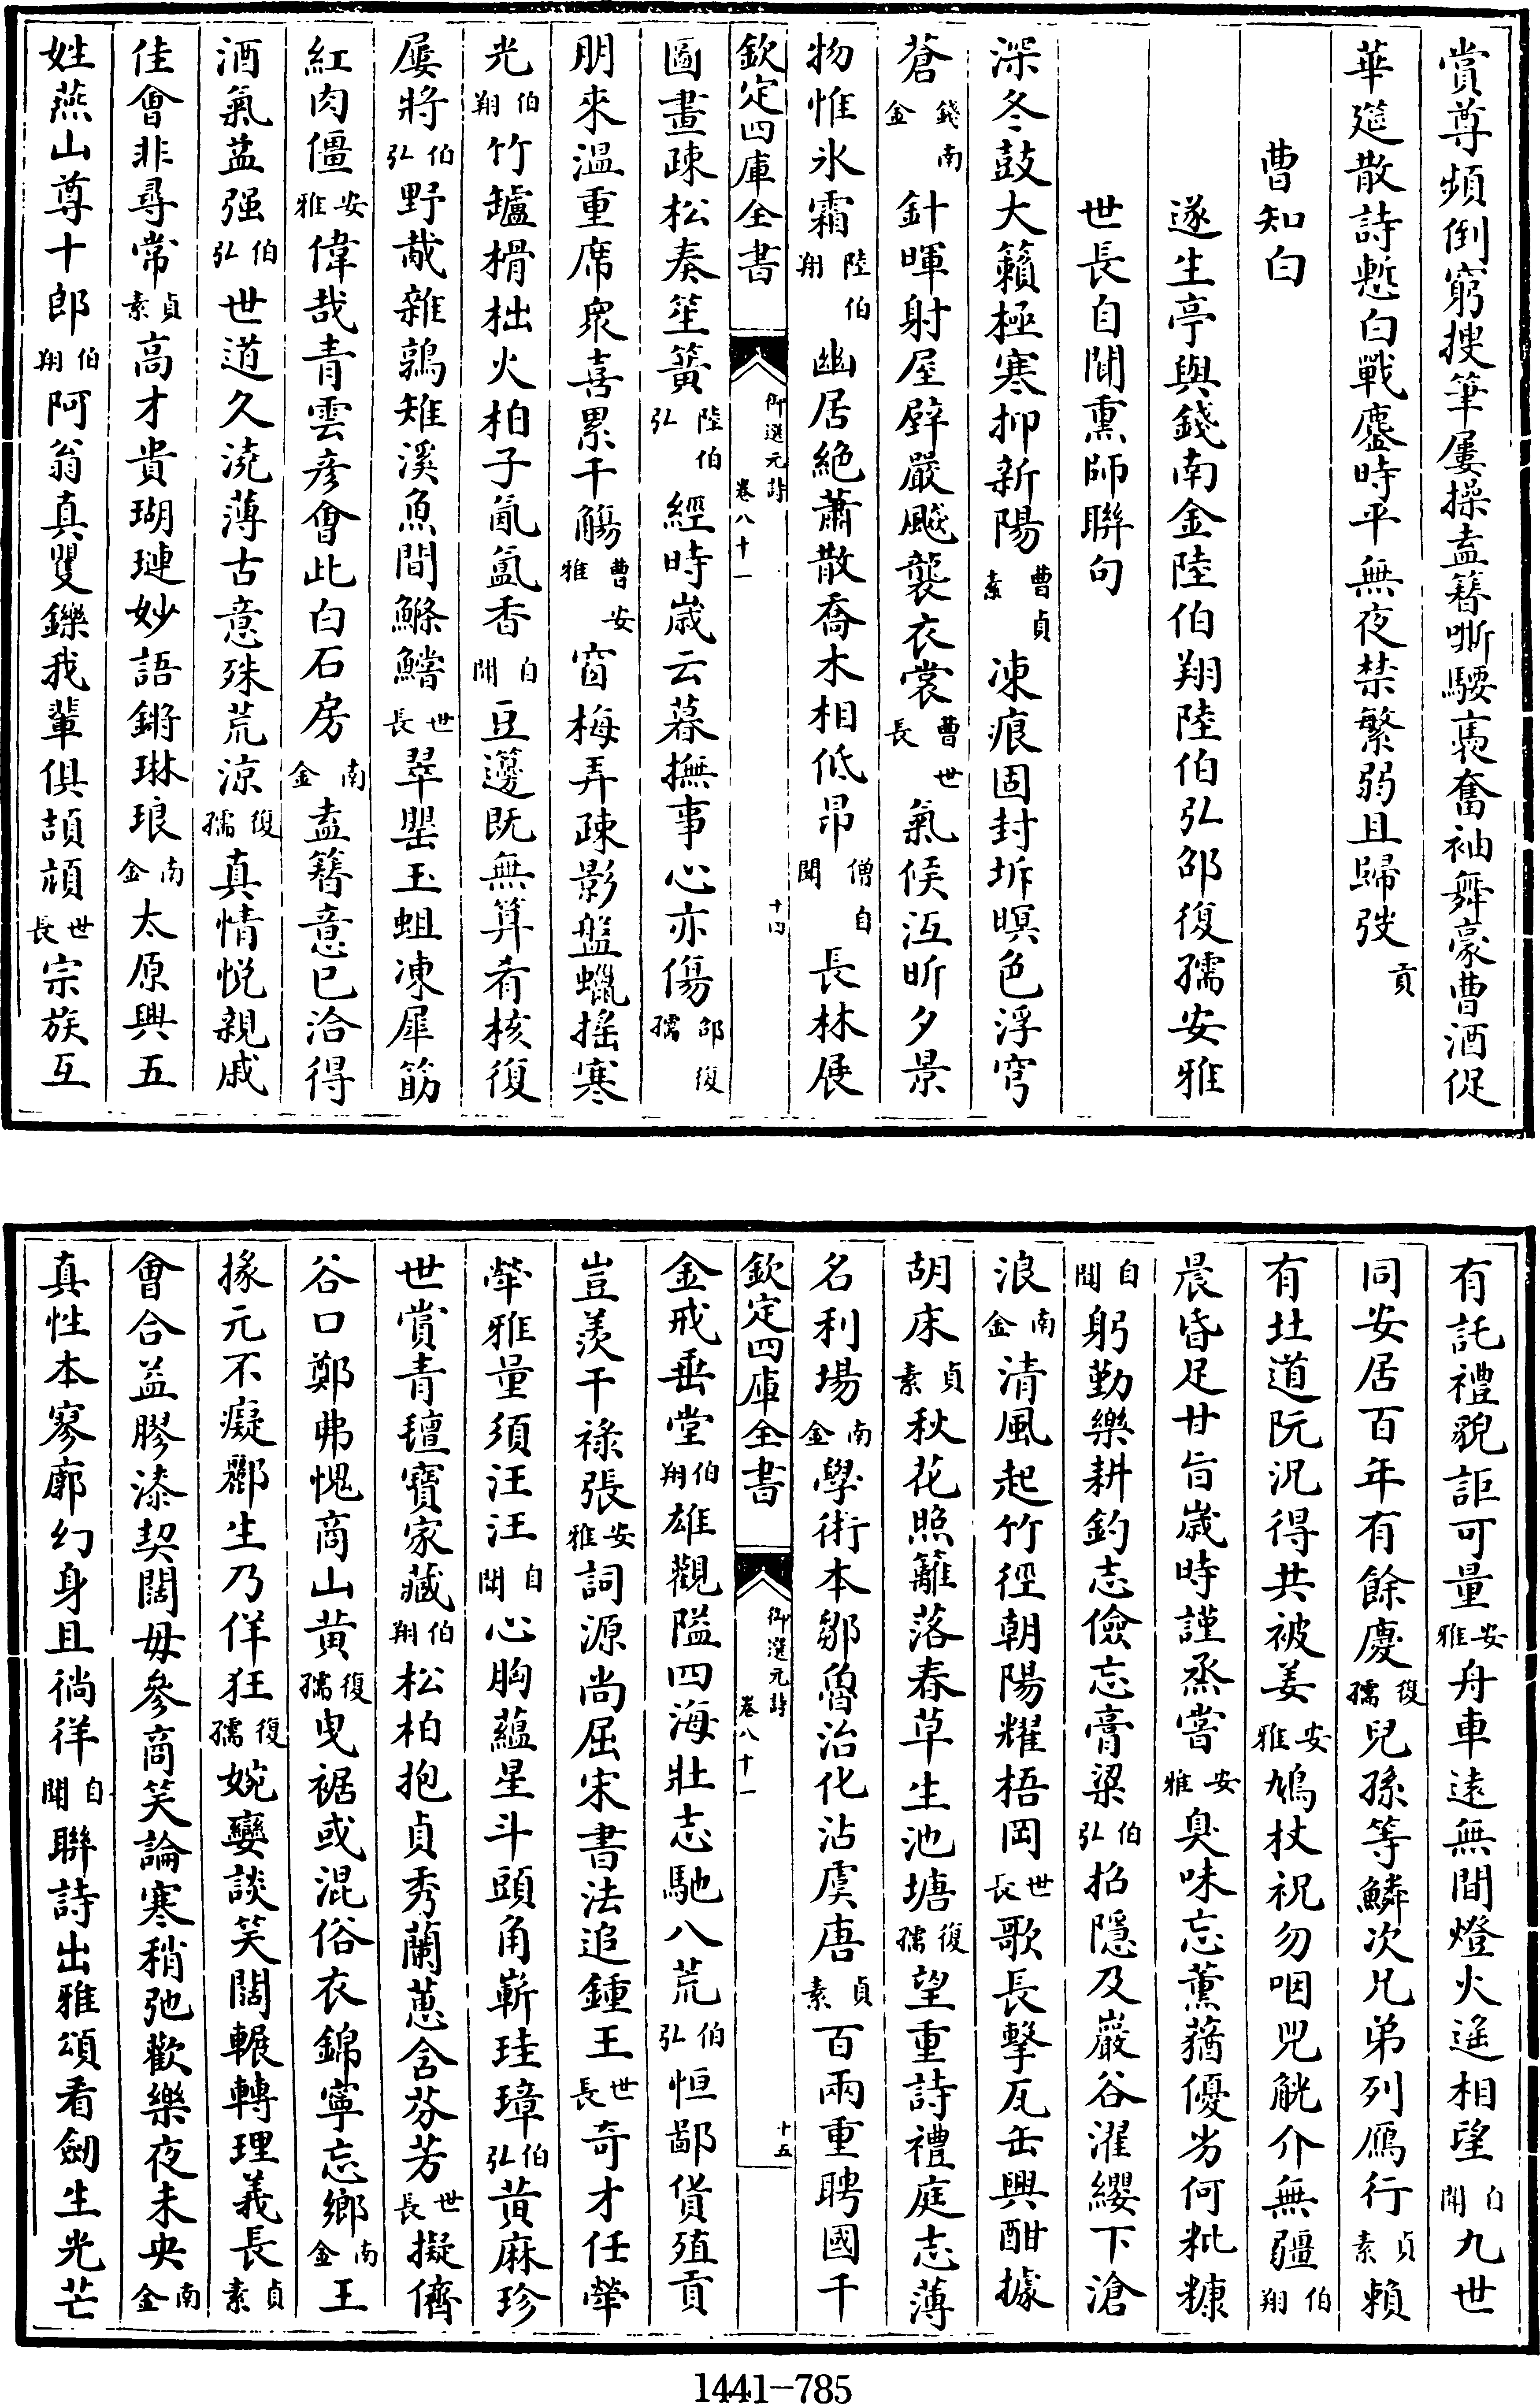 賞尊頻倒窮搜筆屢操盍簪嘶騕褭奮袖舞豪曹酒促
華筵散詩慙白戰鏖時平無夜禁繁弱且歸弢貢
曹知白
遂生亭與錢南金陸伯翔陸伯弘邵復孺安雅
世長自聞熏師聯句
深冬鼓大籟極寒抑新陽曹貞素凍痕固封坼暝色浮穹
蒼錢南金針暉射屋壁嚴飈襲衣裳曹世長氣候沍昕夕景
物惟氷霜陸伯翔幽居絶蕭散喬木相低昂僧自聞長林展
欽定四庫全書
御選元詩
卷八十一
十四
圖畫疎松奏笙簧陸伯弘經時嵗云暮撫事心亦傷邵復孺
朋來溫重席衆喜累千觴曹安雅窗梅弄疎影盤蠟揺寒
光伯翔竹罏榾柮火柏子氤氲香自聞豆籩既無算肴核復
屢將伯弘野胾雜鶉雉溪魚間鰷鱨世長翠罌玉蛆凍犀筯
紅肉僵安雅偉哉青雲彦會此白石房南金盍簪意已洽得
酒氣益强伯弘世道久澆薄古意殊荒涼復孺真情悦親戚
佳會非尋常貞素高才貴瑚璉妙語鏘琳琅南金太原興五
姓燕山尊十郎伯翔阿翁真矍鑠我輩俱頡頏世長宗族互
有託禮貌詎可量安雅舟車逺無間燈火遙相望自聞九世
同安居百年有餘慶復孺兒孫等鱗次兄弟列鴈行貞素頼
有北道阮況得共被姜安雅鳩杖祝勿咽兕觥介無疆伯翔
晨昏足甘旨嵗時謹烝嘗安雅臭味忘薫蕕優劣何粃糠
自聞躬勤樂耕釣志儉忘膏粱伯弘招隱及巖谷濯纓下滄
浪南金清風起竹徑朝陽耀梧岡世長歌長擊瓦缶興酣據
胡床貞素秋花照籬落春草生池塘復孺望重詩禮庭志薄
名利場南金學術本鄒魯治化沾虞唐貞素百兩重聘國千
欽定四庫全書
御選元詩
卷八十一
十五
金戒垂堂伯翔雄觀隘四海壯志馳八荒伯弘恒鄙貨殖貢
豈羨干祿張安雅詞源尚屈宋書法追鍾王世長奇才任犖
犖雅量須汪汪自聞心胸蘊星斗頭角嶄珪璋伯弘黄麻珍
世賞青氊寳家藏伯翔松柏抱貞秀蘭蕙含芬芳世長擬儕
谷口鄭弗愧商山黄復孺曵裾或混俗衣錦寧忘鄉南金王
掾元不癡酈生乃佯狂復孺婉孌談笑闊輾轉理義長貞素
㑹合益膠漆契闊毋參商笑論寒稍弛歡樂夜未央南金
真性本寥廓幻身且徜徉自聞聯詩出雅頌看劒生光芒
1441-785